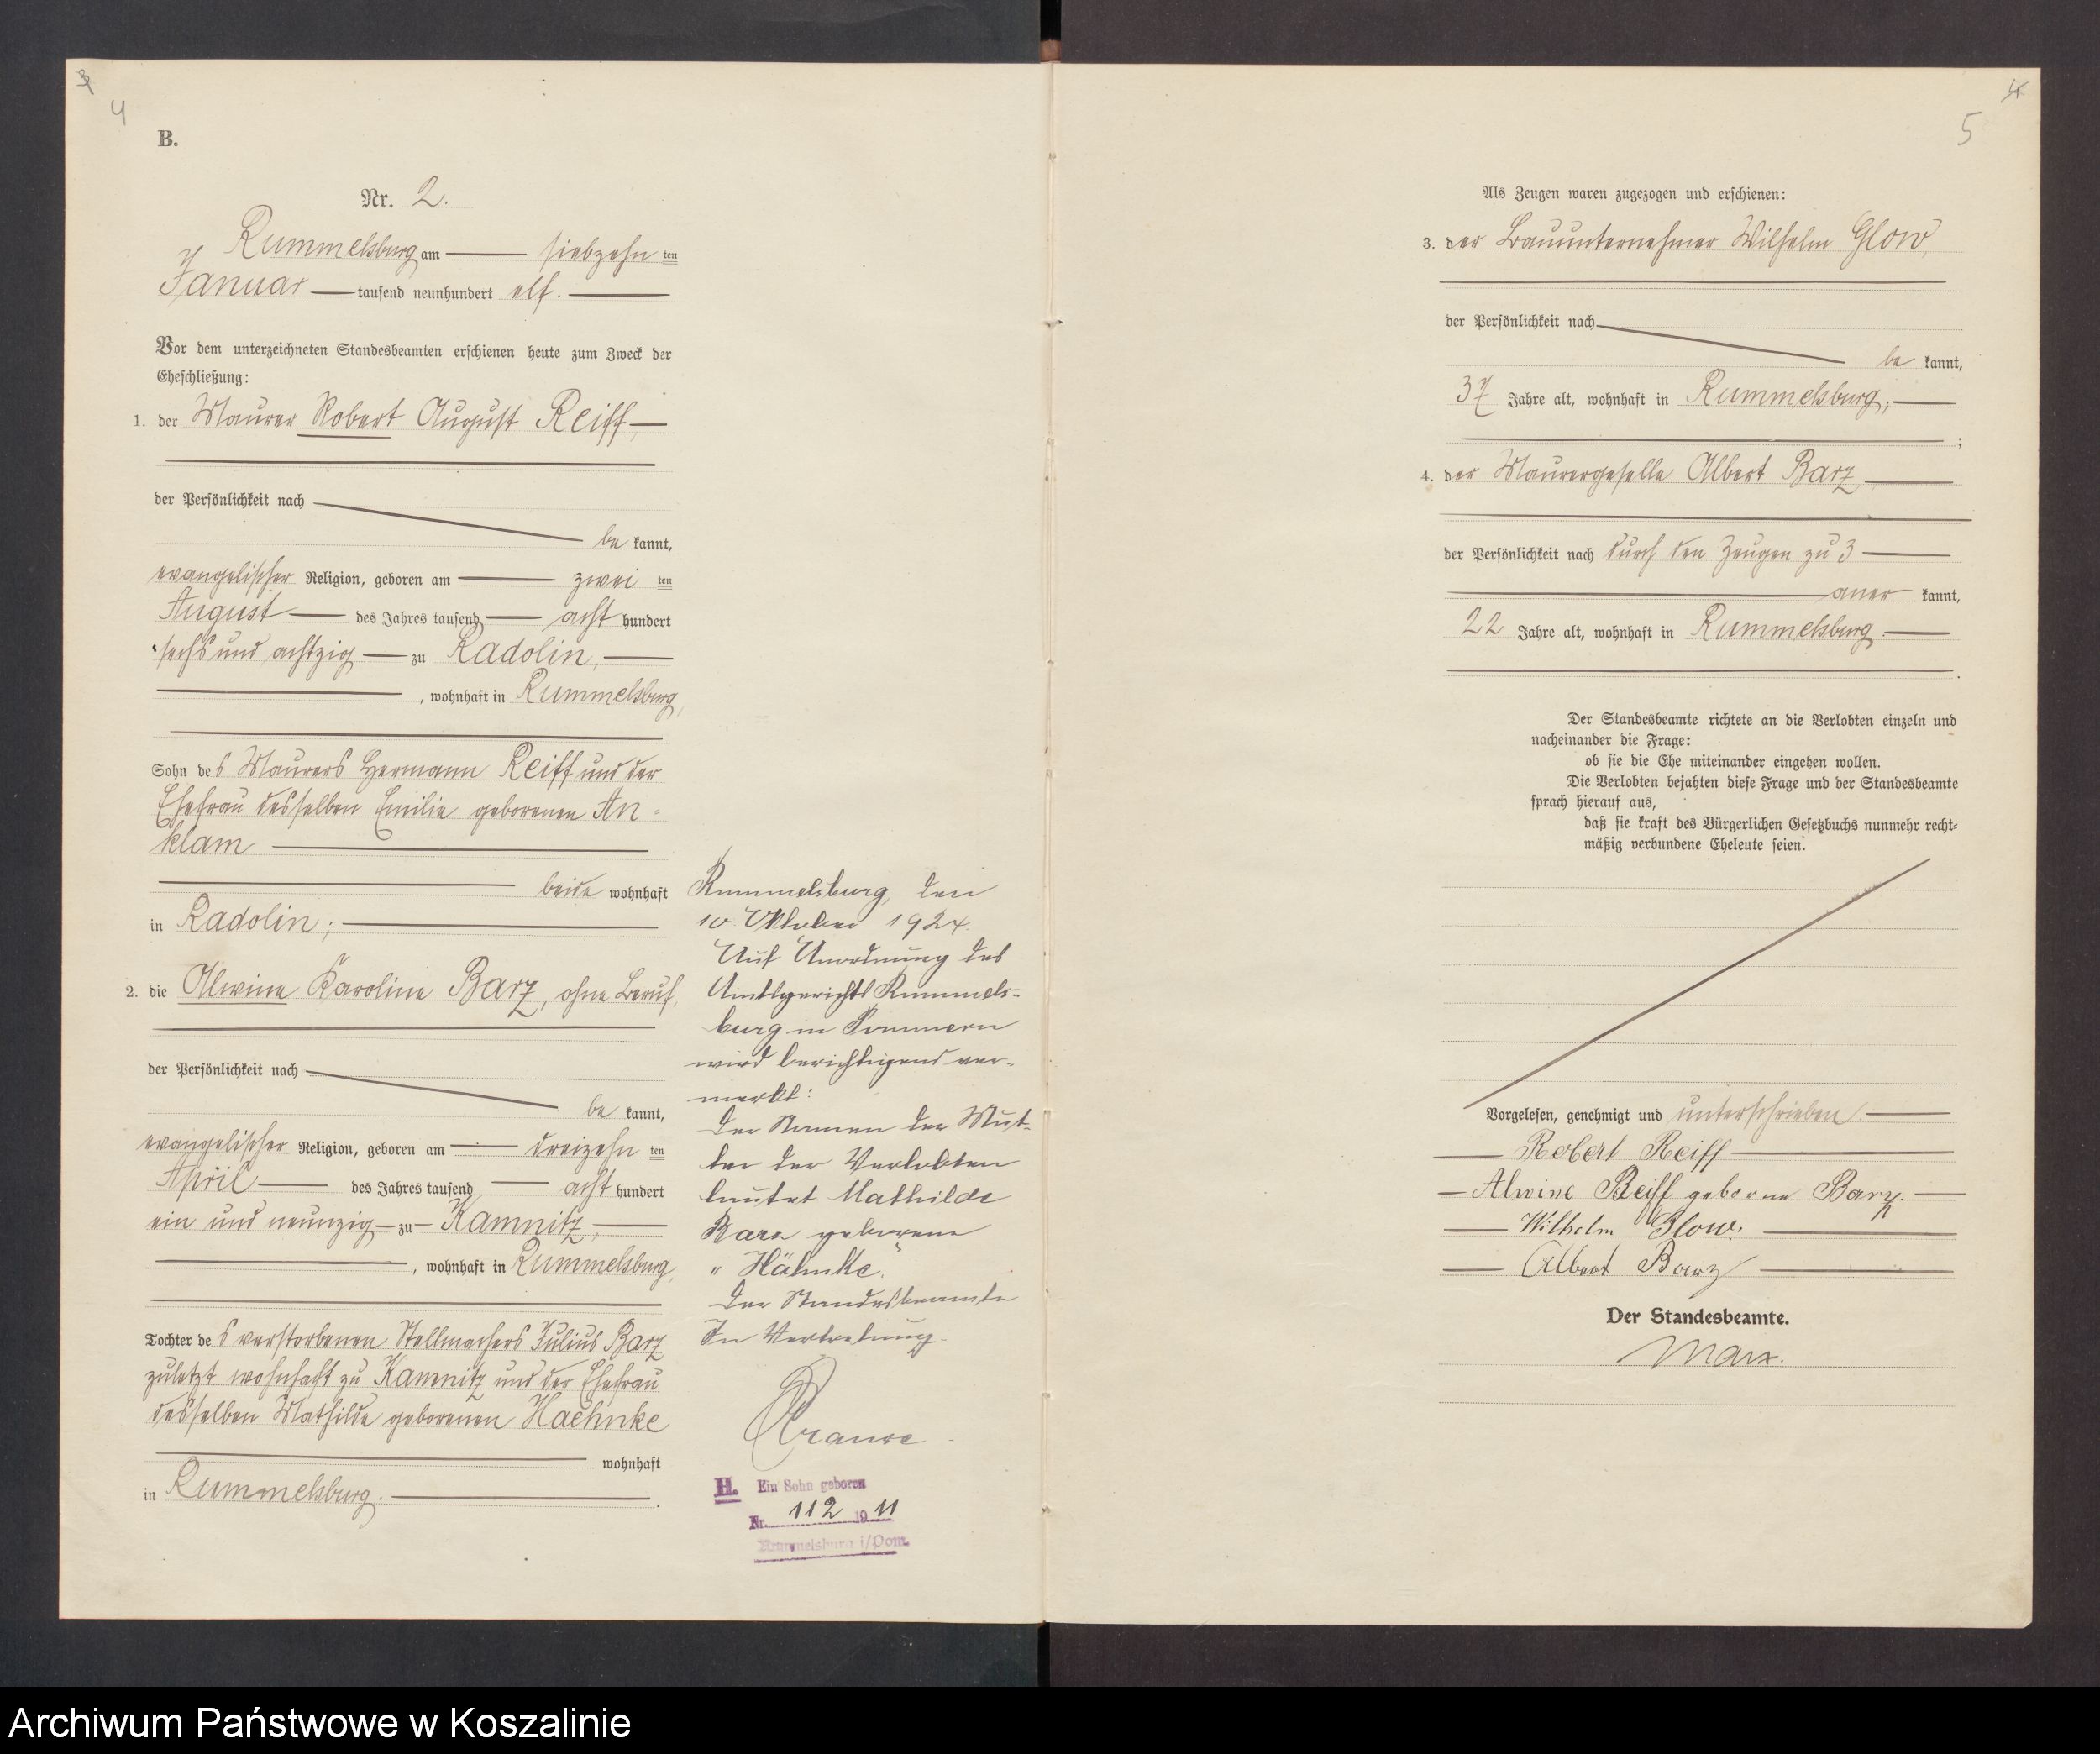 4
B.
Nr. 2.
Rummelsburg am siebzehn ten
Januar tausend neunhundert elf.
Vor dem unterzeichneten Standesbeamten erschienen heute zum Zweck der
Eheschließung:
1. der Maurer Robert August Reiff,
der Persönlichkeit nach
be kannt,
evangelischer Religion, geboren am zwei ten
August des Jahres tausend acht hundert
sechs und achtzig zu Radolin,
, wohnhaft in Rummelsburg,
Sohn des Maurers Hermann Reiff und der
Ehefrau desselben Emilie geborenen An-
klam
beide wohnhaft
in Radolin;
2. die Alwine Karoline Barz, ohne Beruf,
der Persönlichkeit nach
be kannt,
evangelischer Religion, geboren am dreizehn ten
April des Jahres tausend acht hundert
ein und neunzig zu Kamnitz,
, wohnhaft in Rummelsburg,
Tochter des verstorbenen Stellmachers Julius Barz
zuletzt wohnhaft zu Kamnitz und der Ehefrau
desselben Mathilde geborenen Haehnke
wohnhaft
in Rummelsburg.
Rummelsburg, den
10. Oktober 1924.
Auf Anordnung des
Amtsgerichts Rummels-
burg in Pommern
wird berichtigend ver-
merkt:
Der Namen der Mut-
ter der Verlobten
lautet Mathilde
Barz geborene
„Hähnke".
Der Standesbeamte
In Vertretung.
Krause
H. Ein Sohn geboren
Nr. 112 1911
Rummelsburg i/Pom.
5
Als Zeugen waren zugezogen und erschienen:
3. der Bauunternehmer Wilhelm Glow,
der Persönlichkeit nach
be kannt,
37 Jahre alt, wohnhaft in Rummelsburg;
;
4. der Maurergeselle Albert Barz
der Persönlichkeit nach durch den Zeugen zu 3
aner kannt,
22 Jahre alt, wohnhaft in Rummelsburg.
Der Standesbeamte richtete an die Verlobten einzeln und
nacheinander die Frage:
ob sie die Ehe miteinander eingehen wollen.
Die Verlobten bejahten diese Frage und der Standesbeamte
sprach hierauf aus,
daß sie kraft des Bürgerlichen Gesetzbuchs nunmehr recht-
mäßig verbundene Eheleute seien.
Vorgelesen, genehmigt und unterschrieben.
Robert Reiff
Alwine Reiff geborne Barz.
Wilhelm Glow.
Albert Barz
Der Standesbeamte.
Marx.
Archiwum Państwowe w Koszalinie